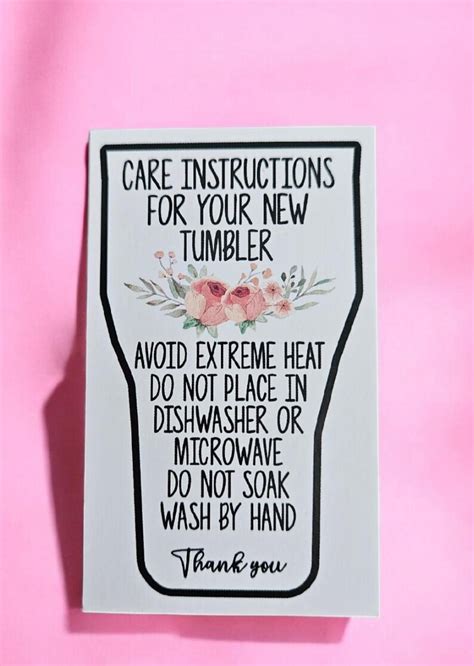 CARE INSTRUCTIONS
FOR YOUR NEW
TUMBLER
AVOID EXTREME HEAT
DO NOT PLACE IN
DISHWASHER OR
MICROWAVE
DO NOT SOAK
WASH BY HAND
Thank you